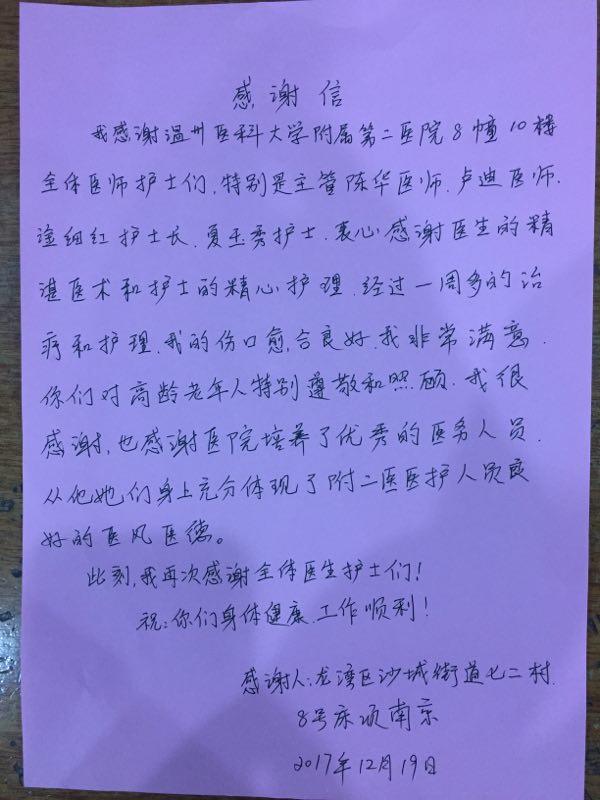 感谢信
我感谢温州医科大学附属第二医院8幢10楼
全体医师护士们,特别是主管陈华医师.卢迪医师.
涂细红护士长.夏玉秀护士.衷心感谢医生的精
湛医术和护士的精心护理.经过一周多的治
疗和护理.我的伤口愈合良好.我非常满意.
你们对高龄老年人特别尊敬和照顾.我很
感谢,也感谢医院培养了优秀的医务人员.
从他她们身上充分体现了附二医医护人员良
好的医风医德。
此刻,我再次感谢全体医生护士们!
祝:你们身体健康.工作顺利!
感谢人:龙湾区沙城街道七二村.
8号床项南京
2017年12月19日